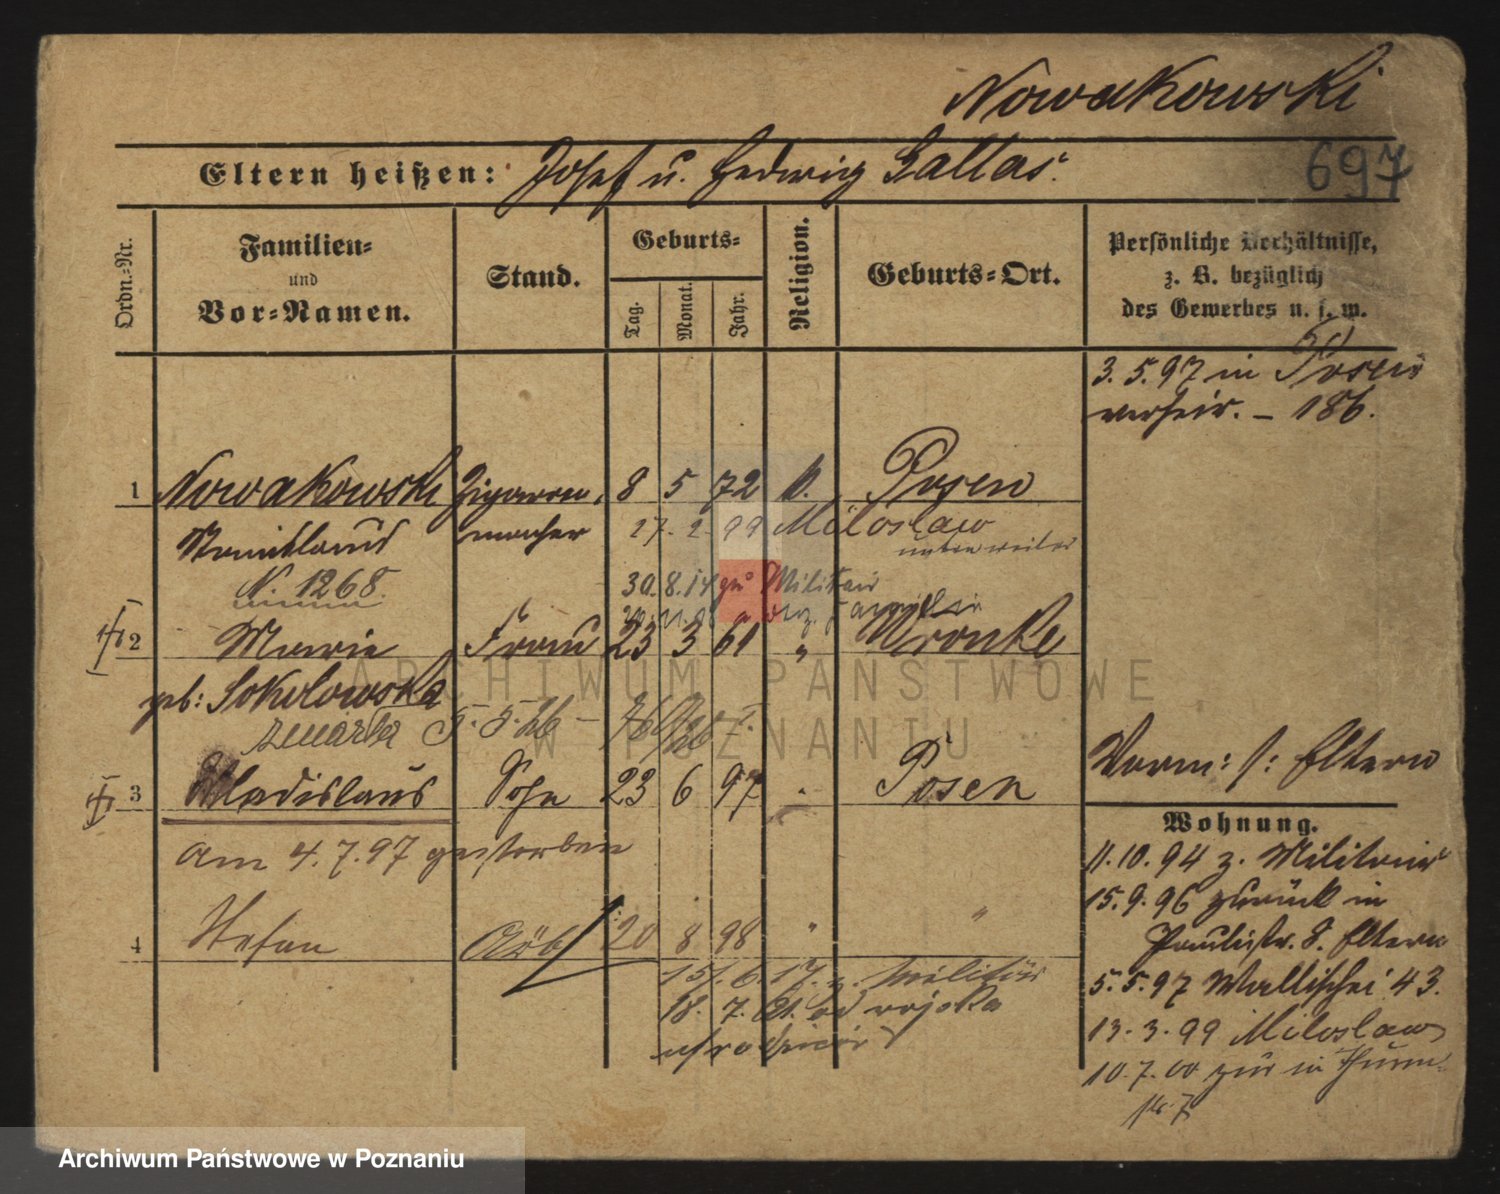 Nowakowski
Eltern heißen: Josef u. Hedwig Gallas.
697
Ordn.-Nr.
Familien-
und
Vor-Namen.
Stand.
Geburts-
Tag.
Monat.
Jahr.
Religion.
Geburts-Ort.
Persönliche Verhältnisse,
z. B. bezüglich
des Gewerbes u. s. w.
3.5.97 in Posen
verheir. – 186.
1 Nowakowski Zigarren- 8 5 72 k. Posen
Stanislaus macher 27. 2. 99 Miloslaw
N. 1268. 30.8.14 zu Militair
2 Marie Frau 23 3 61 " Wronke
geb: Sokolowska
zmarła 5.5.26 –
Vorm: s: Eltern
3 Wladislaus Sohn 23 6 97 Posen
am 4.7.97 gestorben
Wohnung.
11.10.94 z. Militair
15.9.96 zurück in
Paulistr. 8. Eltern
4 Stefan 20 8 98 " "
5.5.97 Wallischei 43.
15. 6. 17. z. Militär
18. 7. 21. od wojska
13.3.99 Miloslaw
10.7.00 zur in Thurm-
str. 7
ARCHIWUM PAŃSTWOWE
W POZNANIU
Archiwum Państwowe w Poznaniu